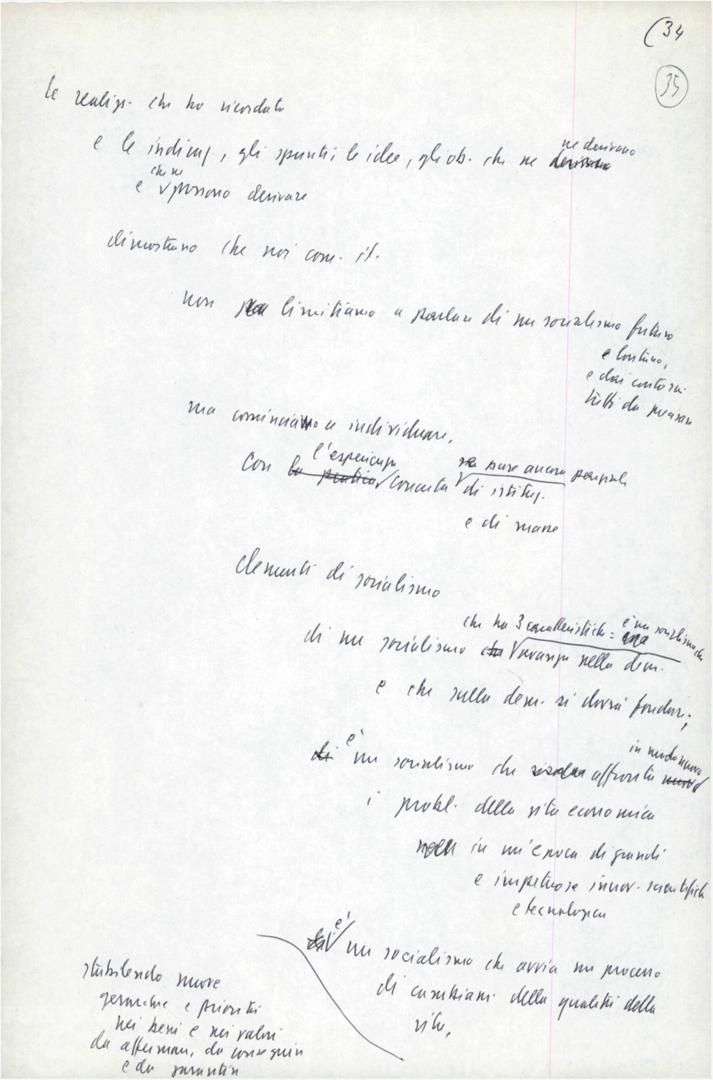 (34
35
le realizz. che ho ricordato
e le indicaz., gli spunti le idee, gli ob. che ne derivano
ne derivano
che ne
e possono derivare
dimostrano che noi com. it.
non limitiamo a parlare di un socialismo futuro
e lontano,
e dai contorni
tutti da pensare
ma cominciamo a individuare,
l'esperienza
pure ancora parziale
con la pratica concreta di istituz.
e di masse
elementi di socialismo
che ha 3 caratteristiche: è un socialismo che
di un socialismo che avanza nella dem.
e che sulla dem. si dovrà fondare;
in modo nuovo
di è un socialismo che affronta
i probl. della vita economica
in un'epoca di grandi
e impetuose innov. scientifiche
e tecnologica
è un socialismo che avvia un processo
di cambiam. della qualità della
vita,
stabilendo nuove
gerarchie e priorità
nei beni e nei valori
da affermare, da conseguire
e da garantire